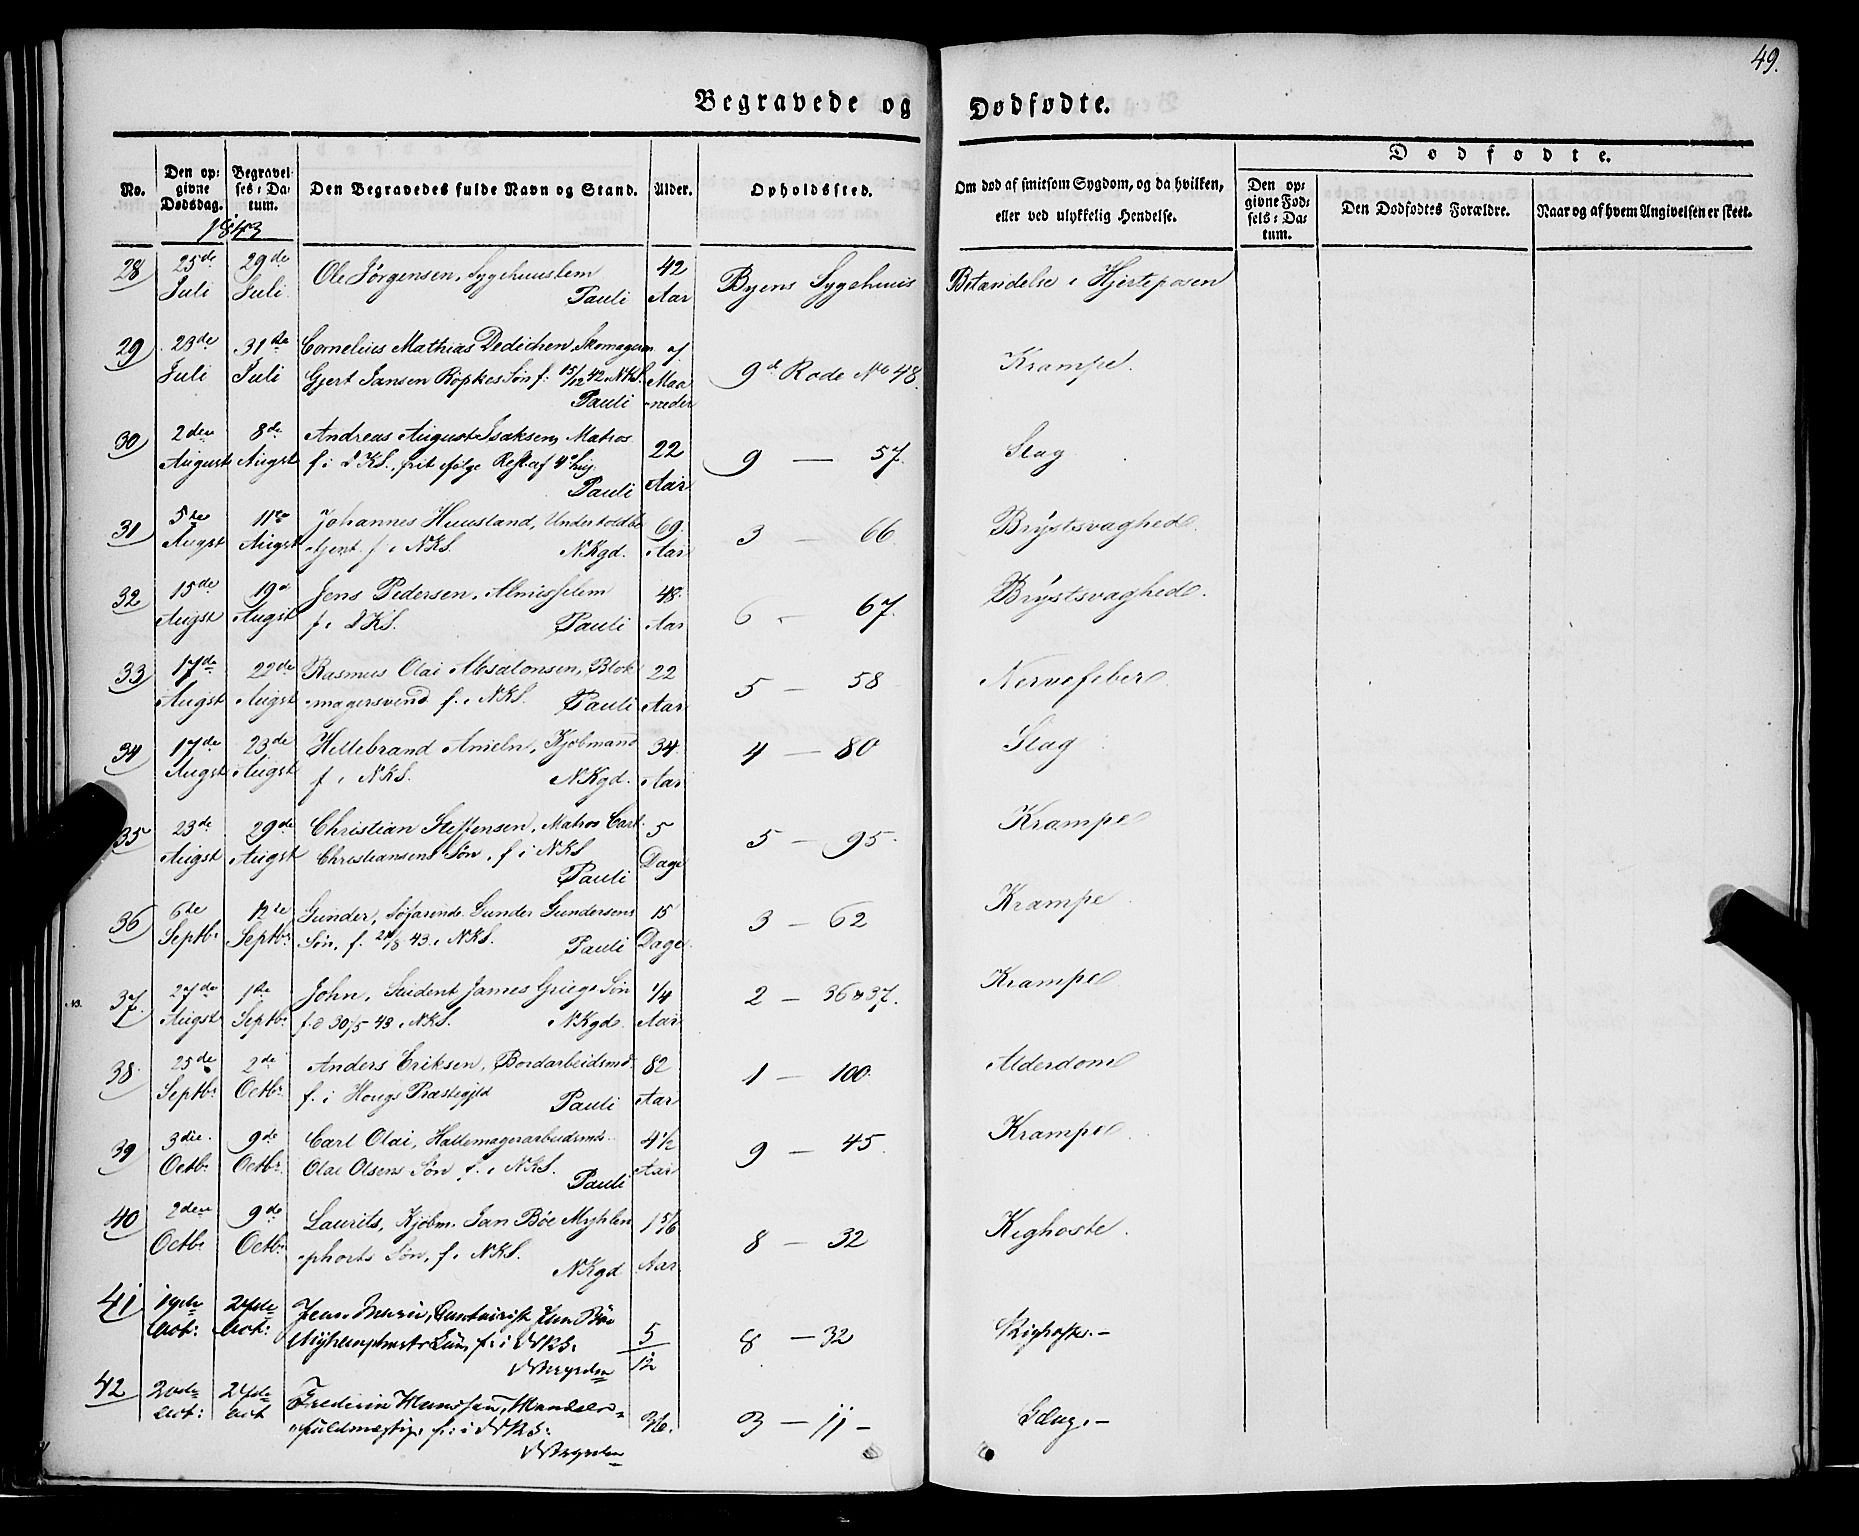 49.
Begravede og Dødfødte.
Dødfødte.
No.
Den opgivne Dødsdag.
Begravelses-Datum.
Den Begravedes fulde Navn og Stand.
Alder.
Opholdssted.
Om død af smitsom Sygdom, og da hvilken, eller ved ulykkelig Hendelse.
Den opgivne Fødsels-Datum.
Den Dødfødtes Forældre.
Naar og af hvem Angivelsen er skeet.
1843
28 25de 29de Ole Jørgensen, Sygehuuslem 42 Byens Sygehuus Betændelse i Hjerteposen
Juli Juli Pauli Aar
29 23de 31te Cornelius Mathias Dedichen, Skomager 7 9d Rode No 48. Krampe.
Juli Juli Gjert Jansen Röpkes Søn f: 15/12 42 i NKS. Maa
Pauli neder
30 2den 8de Andreas August Isaksen, Matros 22 9 — 57. Slag
August Augst f. i DKS., frit Følge
Pauli Aar
31 5te 11te Johannes Huusland, 69 3 — 66 Brystsvaghed.
Augst Augst f. i NKS. NKgd. Aar
32 15de 19d Jens Pedersen, Almisselem 48 6 - 67. Brystsvaghed.
Augst Augst f. i DKS. Pauli Aar
33 17de 22de Rasmus Olai Absalonsen, Blok 22 5 — 58 Nervefeber
Augst Augst magersvend f. i NKS. Pauli Aar
34 17de 23de Hillebrand Ameln, Kjøbmand 34 4 — 80 Slag
Augst Augst f. i NKS. NKgd. Aar
35 23de 29de Christian Steffensen, Matros Carl 5 5 — 95. Krampe
Augst Augst Christiansens Søn, f. i NKS
Pauli Dage
36 6te 12te Gunder, Søfarende Gunder Gundersens 15 3 — 62 Krampe
Septbr Septbr Søn, f. 21/8 43. i NKS. Pauli Dage
NB. 37. 27de 1ste John, Student James Griegs Søn 1/4 2 — 36 & 37. Krampe
Augst Septbr f. d 30/5 43 i NKS. NKgd. Aar
38 25de 2de Anders Eriksen, Bordarbeidsmd. 82 1 — 100. Alderdom
Septbr Octbr f. i Hougs Præstegjld Pauli Aar
39 3die 9de Carl Olai, Hattemagerarbeidsmds. 4 1/2 9 — 45 Krampe
Octbr Octbr Olai Olsens Søn f. i NKS. Pauli Aar
40 2den 9de Laurits, Kjøbm. Jan Bøe Myhlen 1 5/6 8 — 32 Kighoste.
Octbr Octbr phorts Søn, f. i NKS.
NKgd Aar
41 19de 24de Jean Bøe 5/12 8 — 32 Kighoste.—
Oct: Oct: Søn, f: i NKS.
42 20de 24de 36. 3 — 11 — Slag.—
Oct: Oct fuldmægtig, f: i NKS.